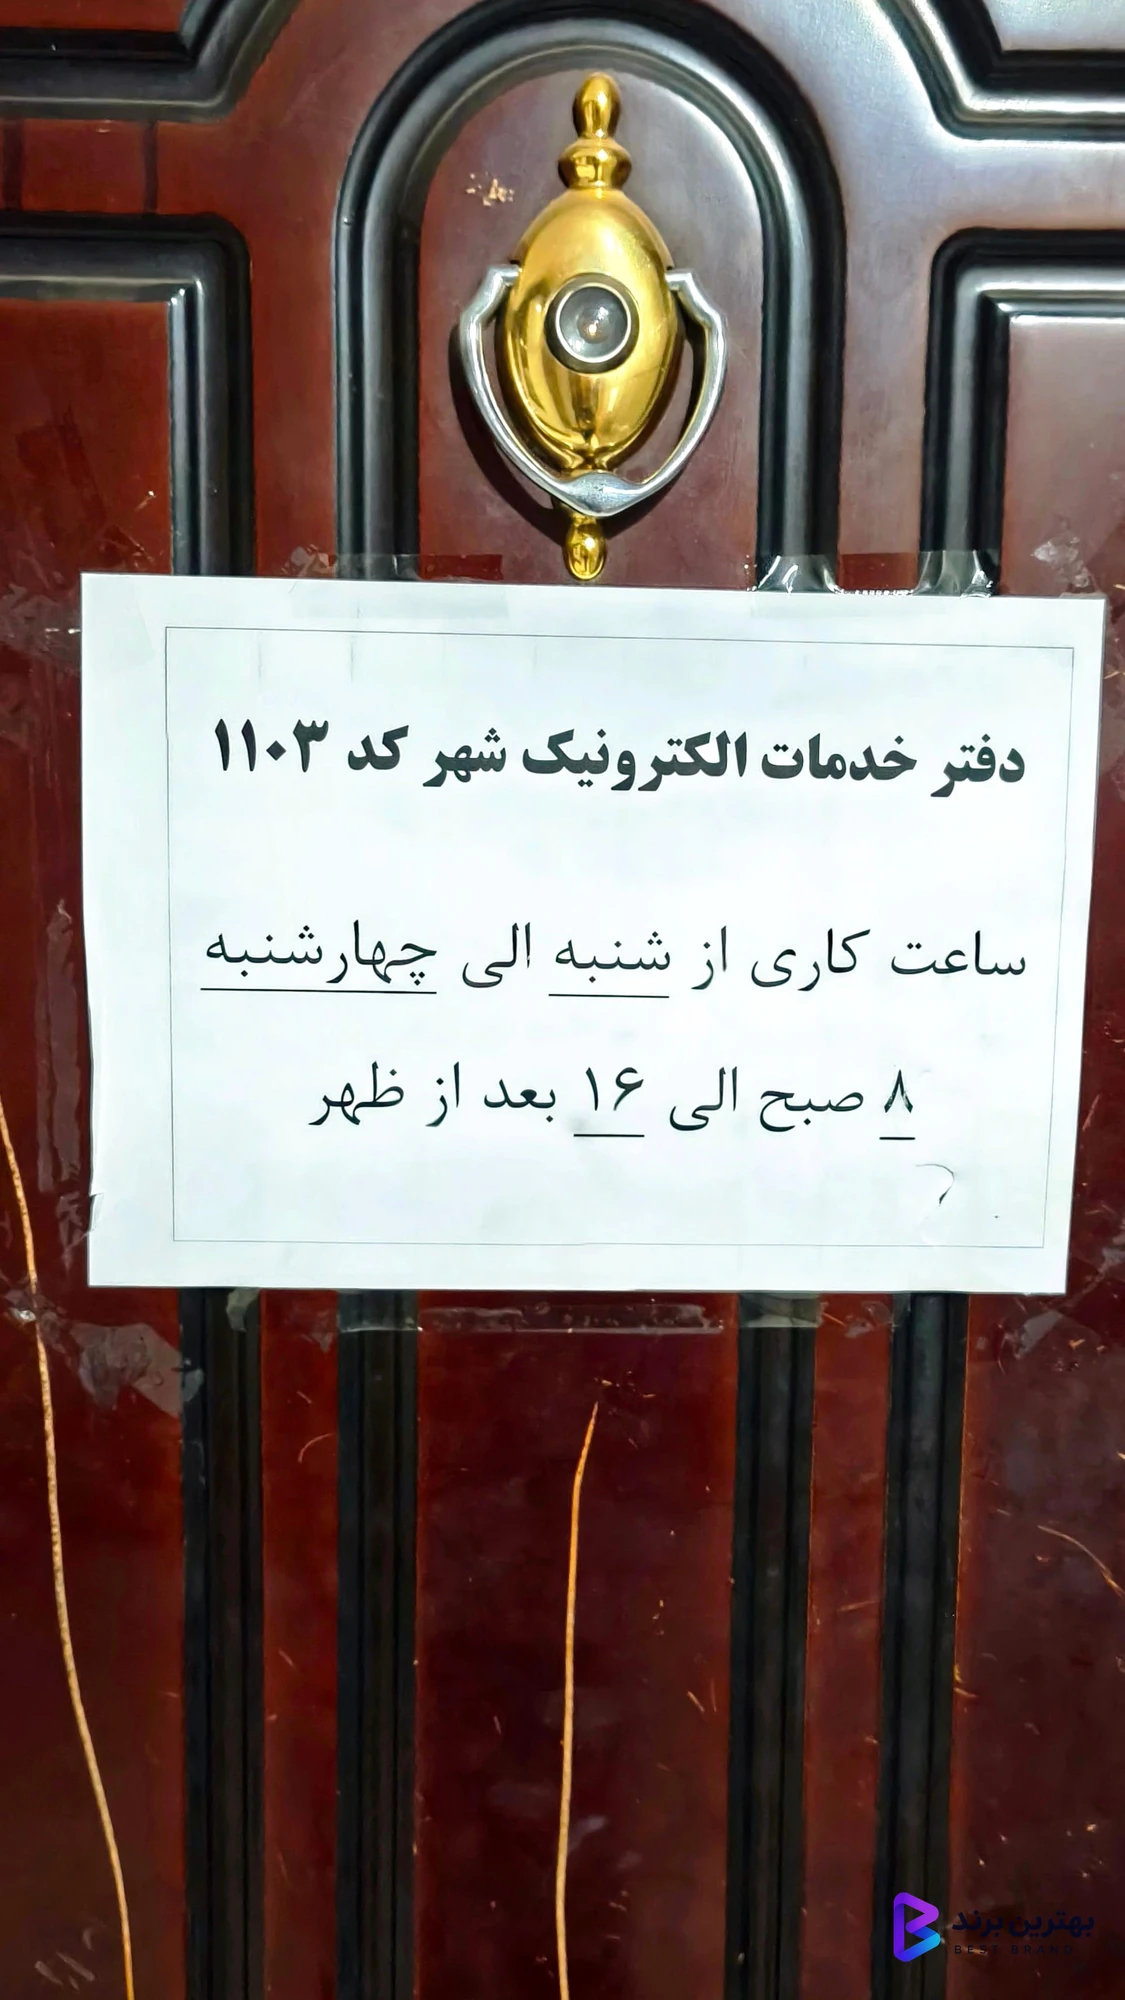 دفتر خدمات الکترونیک شهر کد ۱۱۰۳
ساعت کاری از شنبه الی چهارشنبه
۸ صبح الی ۱۶ بعد از ظهر
بهترین برند
BEST BRAND